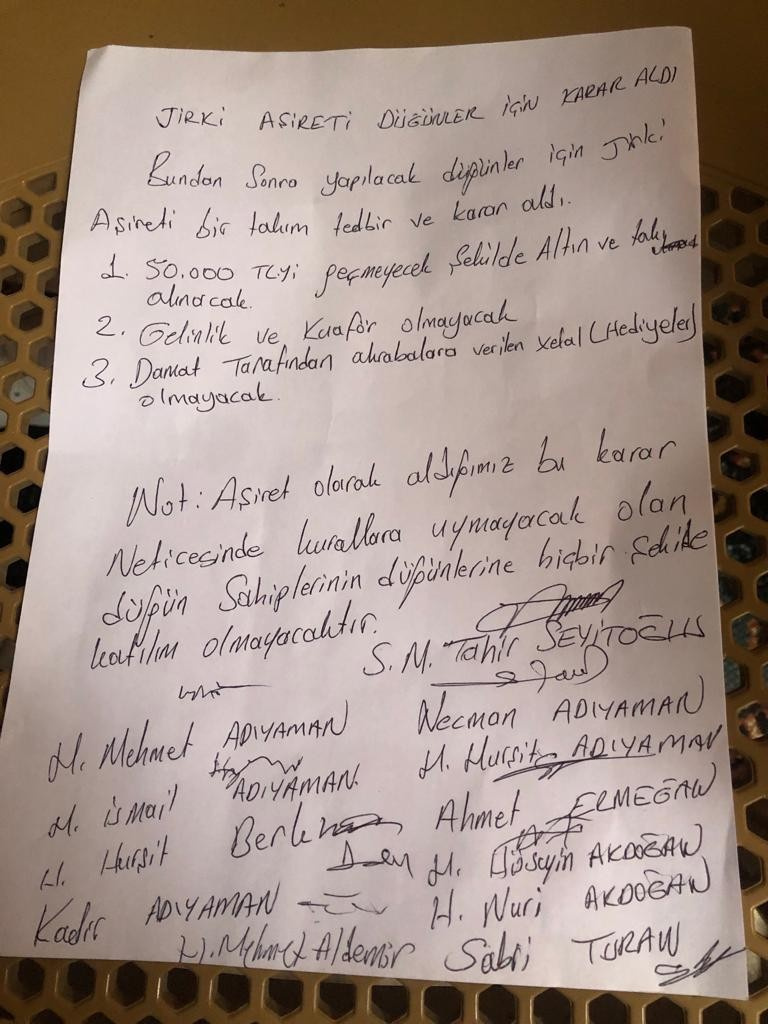 JİRKİ AŞİRETİ DÜĞÜNLER İÇİN KARAR ALDI
Bundan Sonra yapılacak düğünler için Jirki
Aşireti bir takım tedbir ve karar aldı.
1. 50.000 TLyi geçmeyecek Şekilde Altın ve takı
alınacak.
2. Gelinlik ve Kuaför olmayacak
3. Damat Tarafından akrabalara verilen Xelal (Hediyeler)
olmayacak.
Not: Aşiret olarak aldığımız bu karar
Neticesinde kurallara uymayacak olan
düğün Sahiplerinin düğünlerine hiçbir Şekilde
katılım olmayacaktır.
S. M. Tahir SEYİTOĞLU
H. Mehmet ADIYAMAN Necman ADIYAMAN
H. İsmail ADIYAMAN. H. Hurşit ADIYAMAN
H. Hurşit Ahmet ERMEĞAN
H. Hüseyin AKDOĞAN
Kadir ADIYAMAN H. Nuri AKDOĞAN
H. Mehmet Aldemir Sabri TURAN